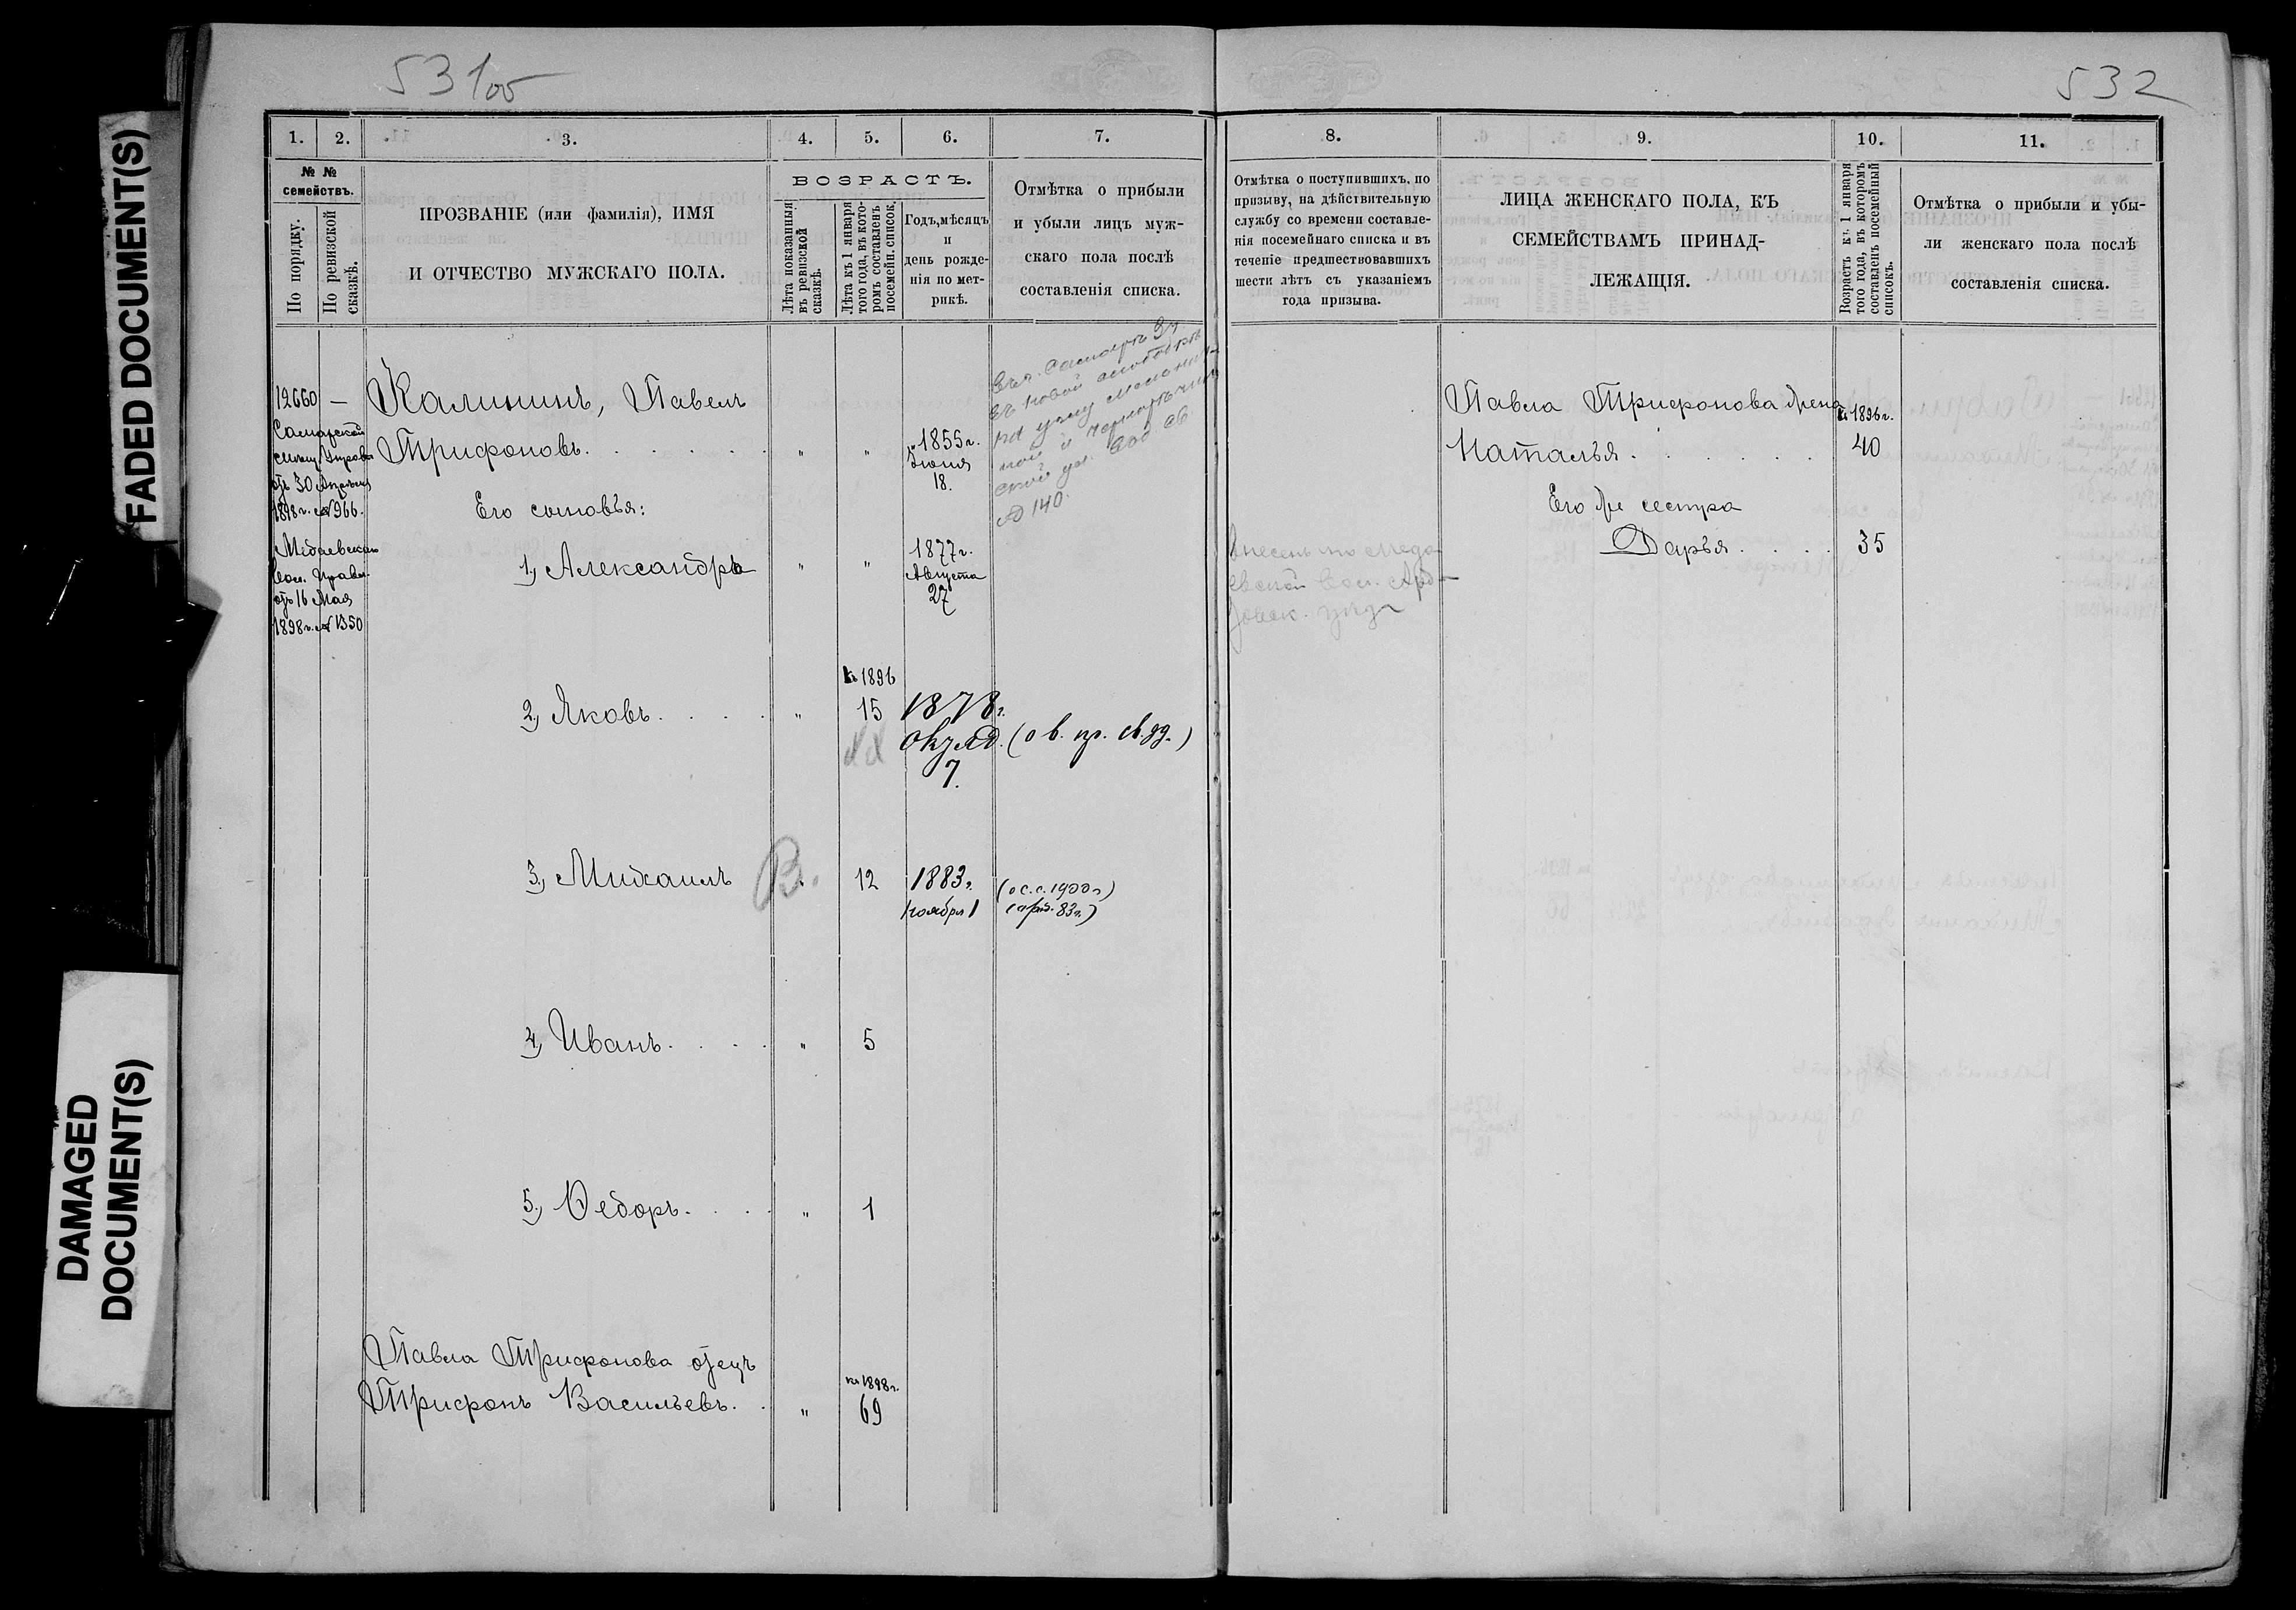 531об
532
FADED DOCUMENT(S)
DAMAGED
DOCUMENT(S)
1.
2.
3.
4.
5.
6.
7.
8.
9.
10.
11.
№ №
семействъ.
По порядку.
По ревизской
сказкѣ.
ПРОЗВАНІЕ (или фамилія), ИМЯ
И ОТЧЕСТВО МУЖСКАГО ПОЛА.
ВОЗРАСТЪ.
Лѣта показанныя
въ ревизской
сказкѣ.
Лѣта къ 1 января
того года, въ кото-
ромъ составленъ
посемейн. список.
Годъ, мѣсяцъ
и
день рожде-
нія по мет-
рикѣ.
Отмѣтка о прибыли
и убыли лицъ муж-
скаго пола послѣ
составленія списка.
Отмѣтка о поступившихъ, по
призыву, на дѣйствительную
службу со времени составле-
нія посемейнаго списка и въ
теченіе предшествовавшихъ
шести лѣтъ съ указаніемъ
года призыва.
ЛИЦА ЖЕНСКАГО ПОЛА, КЪ
СЕМЕЙСТВАМЪ ПРИНАД-
ЛЕЖАЩІЯ.
Возрастъ къ 1 января
того года, въ которомъ
составленъ посемейный
списокъ.
Отмѣтка о прибыли и убы-
ли женскаго пола послѣ
составленія списка.
12660 —
Самарской
мѣщ. Управы
отъ 30 Апрѣля
1898 г. № 966.
Медаевскаго
Вол. Правл.
отъ 16 Мая
1898 г. № 1350
Калининъ, Павелъ
Трифоновъ. . . . . . . " " 1855 г.
Іюня
18.
въ новой
№ 140.
Его сыновья:
1., Александръ " " 1877 г.
Августа
27
2., Яковъ. . . . . " к 1896
15 1878 г.
7.
3., Михаилъ В. 12 1883 г.
ноября 1
(о с.с. 1900 г)
83 г.)
4., Иванъ. . . . . " 5
5., Ѳедоръ. . . . " 1
Павла Трифонова отецъ
Трифонъ Васильевъ. . " к 1898 г.
69
Внесенъ по Меда-
евской Вол. Ард-
Павла Трифонова жена к 1896 г.
Наталья. . . . . . . 40
Его же сестра
Дарья. . . . . 35